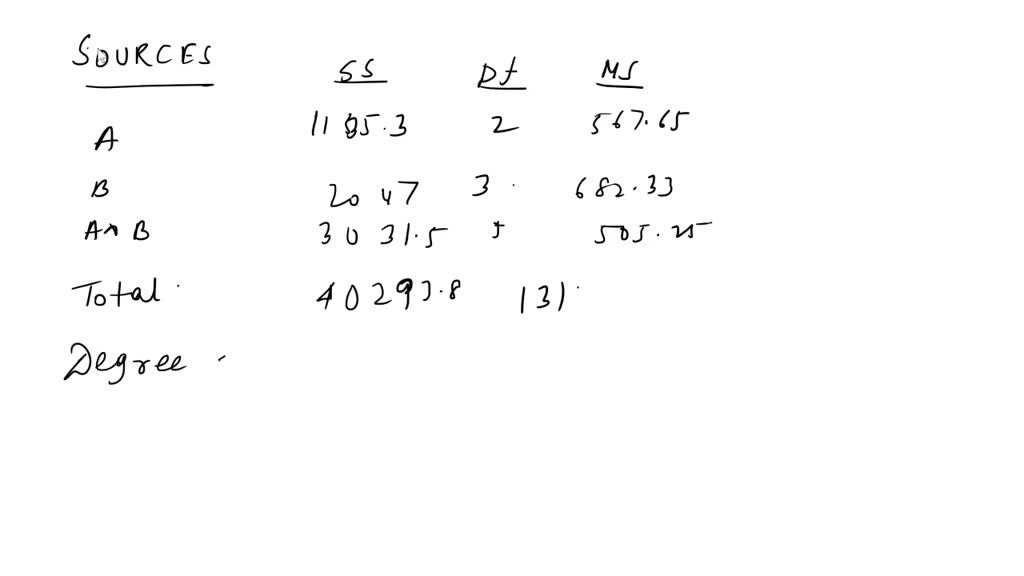 SOURCES SS Df MS
A 1195.3 2 567.65
B 2047 3 682.33
A×B 3031.5 5 505.25
Total 40293.8 131
Degree